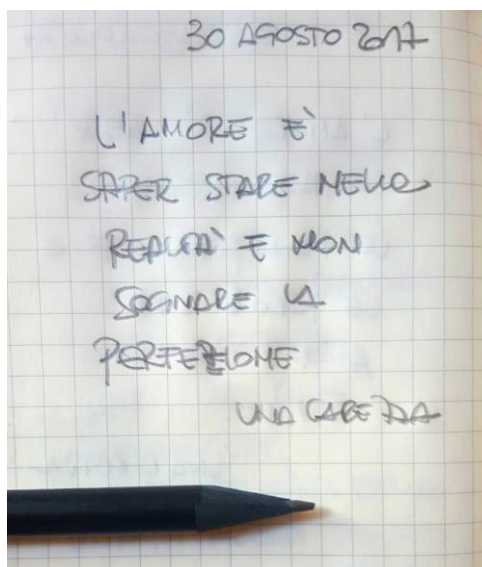 30 AGOSTO 2017
L'AMORE È
SAPER STARE NELLA
REALTÀ E NON
SOGNARE LA
PERFEZIONE
UNA